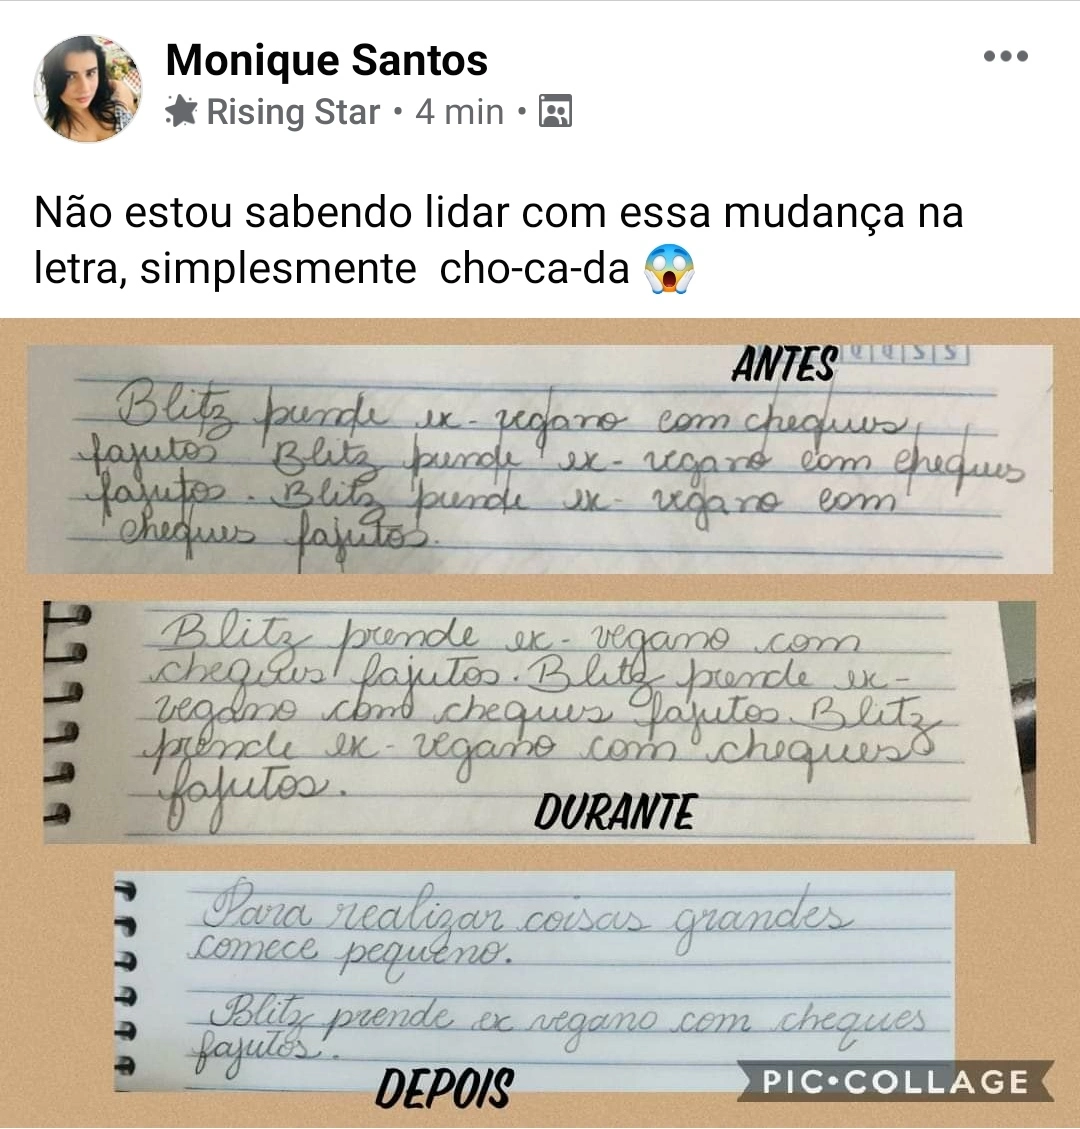 Monique Santos
Rising Star • 4 min •
Não estou sabendo lidar com essa mudança na
letra, simplesmente cho-ca-da 😱
ANTES
Blitz prende ex-vegano com cheques
fajutos Blitz prende ex-vegano com cheques
fajutos. Blitz prende ex-vegano com
cheques fajutos.
Blitz prende ex-vegano com
cheques fajutos. Blitz prende ex-
vegano com cheques fajutos. Blitz
prende ex-vegano com cheques
fajutos.
DURANTE
Para realizar coisas grandes
comece pequeno.
Blitz prende ex vegano com cheques
fajutos.
DEPOIS
PIC•COLLAGE